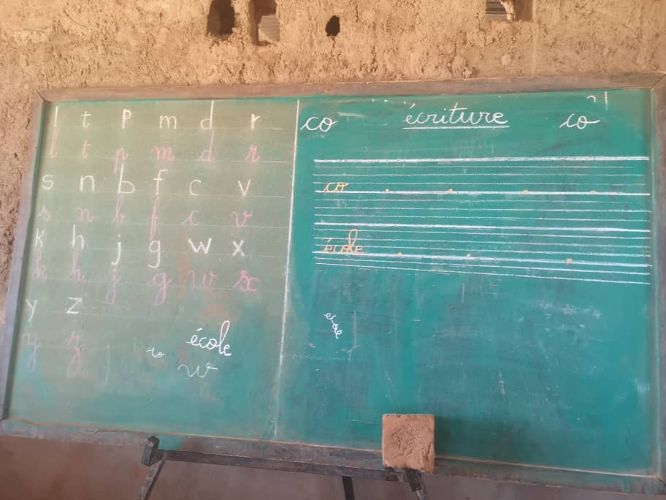 l t p m d r
l t p m d r
s n b f c v
s n b f c v
k h j g w x
k h j g w x
y z
y z
école
w
co écriture co
co
école